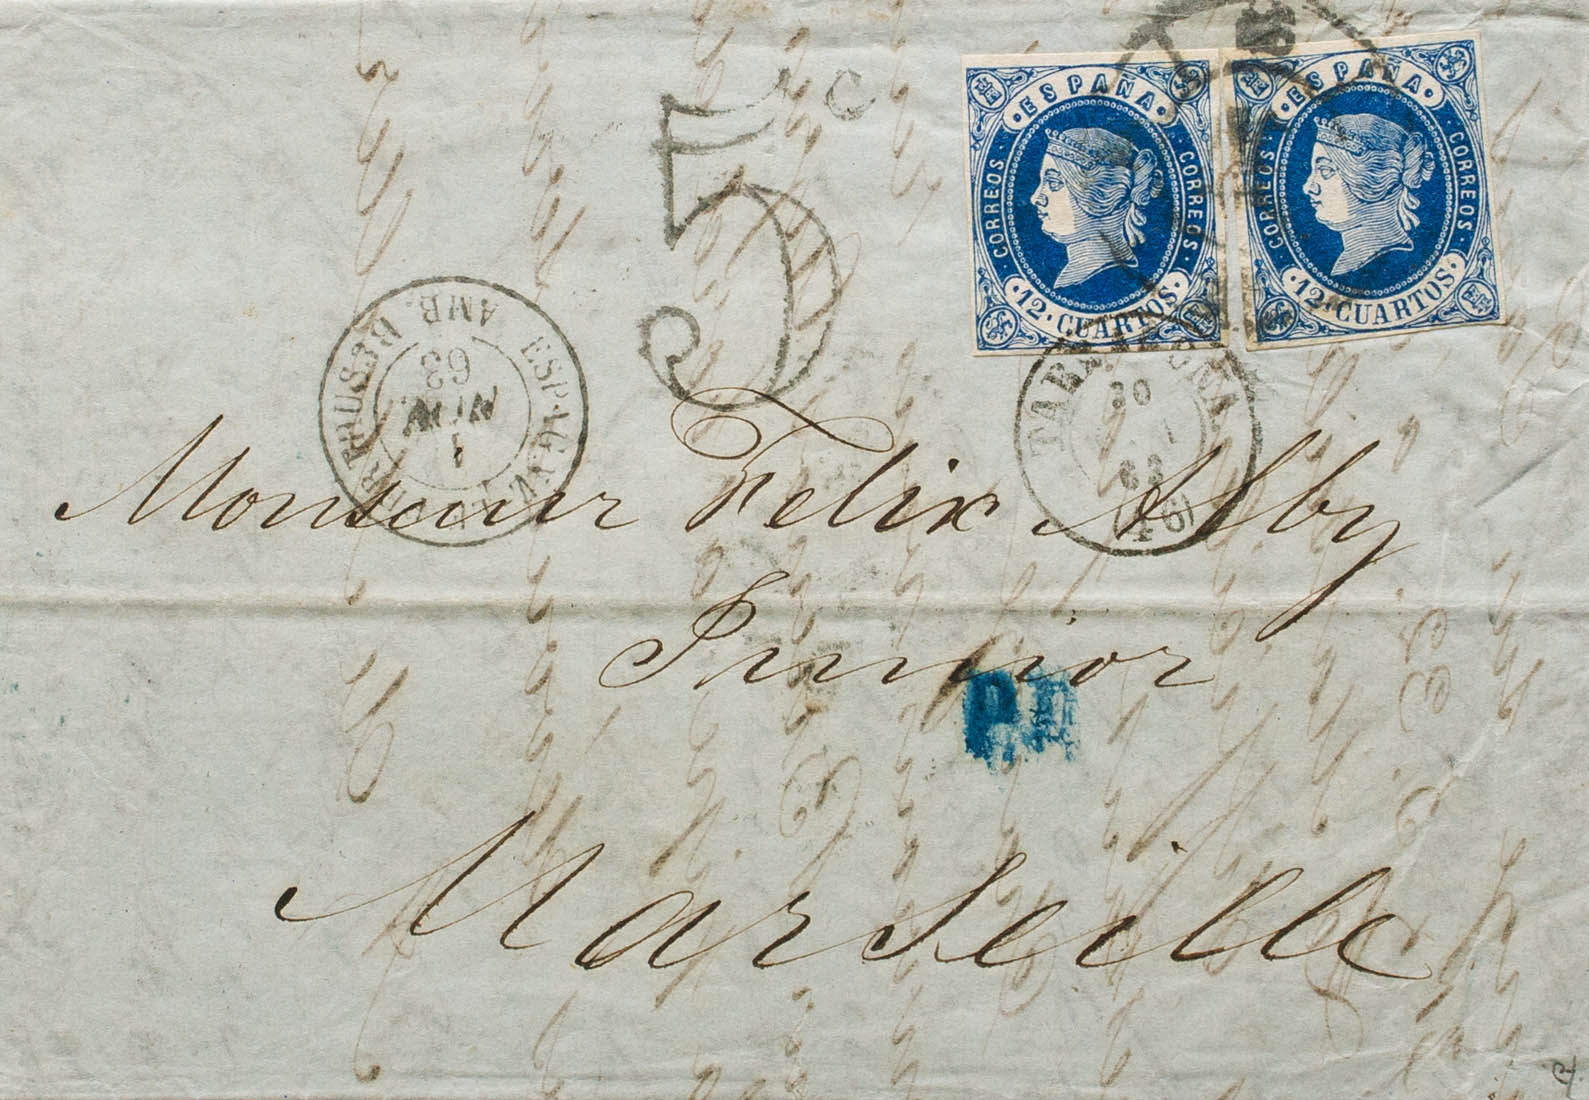 5 c
ESPAÑA
CORREOS CORREOS
12 CUARTOS
ESPAÑA
CORREOS CORREOS
12 CUARTOS
ESPAGNE
AMB.
63
NOV
1
TARRAGONA
30
63
Monsieur Felix Alby
Junior
PD
Marseille